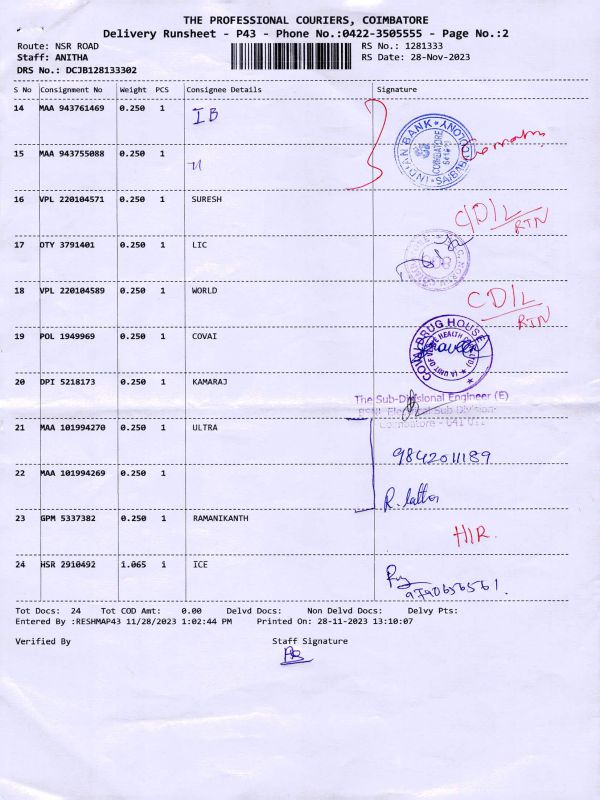 THE PROFESSIONAL COURIERS, COIMBATORE
Delivery Runsheet - P43 - Phone No.:0422-3505555 - Page No.:2
Route: NSR ROAD RS No.: 1281333
Staff: ANITHA RS Date: 28-Nov-2023
DRS No.: DCJB128133302
S No Consignment No Weight PCS Consignee Details Signature
14 MAA 943761469 0.250 1 IB
15 MAA 943755088 0.250 1 "
INDIAN BANK SAIBABA COLONY COIMBATORE
16 VPL 220104571 0.250 1 SURESH C/D/L RTN
17 OTY 3791401 0.250 1 LIC
18 VPL 220104589 0.250 1 WORLD CD/L RTN
19 POL 1949969 0.250 1 COVAI
COVAI DRUG HOUSE
20 DPI 5218173 0.250 1 KAMARAJ
The Sub-Divisional Engineer (E)
BSNL Electrical Sub Division
Coimbatore - 641 011
21 MAA 101994270 0.250 1 ULTRA 9842011189
22 MAA 101994269 0.250 1 R. latha
23 GPM 5337382 0.250 1 RAMANIKANTH HIR
24 HSR 2910492 1.065 1 ICE
9790656561.
Tot Docs: 24 Tot COD Amt: 0.00 Delvd Docs: Non Delvd Docs: Delvy Pts:
Entered By :RESHMAP43 11/28/2023 1:02:44 PM Printed On: 28-11-2023 13:10:07
Verified By Staff Signature